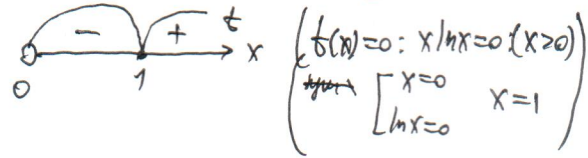 − + f x
0 1
(f(x)=0: x lnx=0:(x>0)
[ x=0
lnx=0 x=1 )